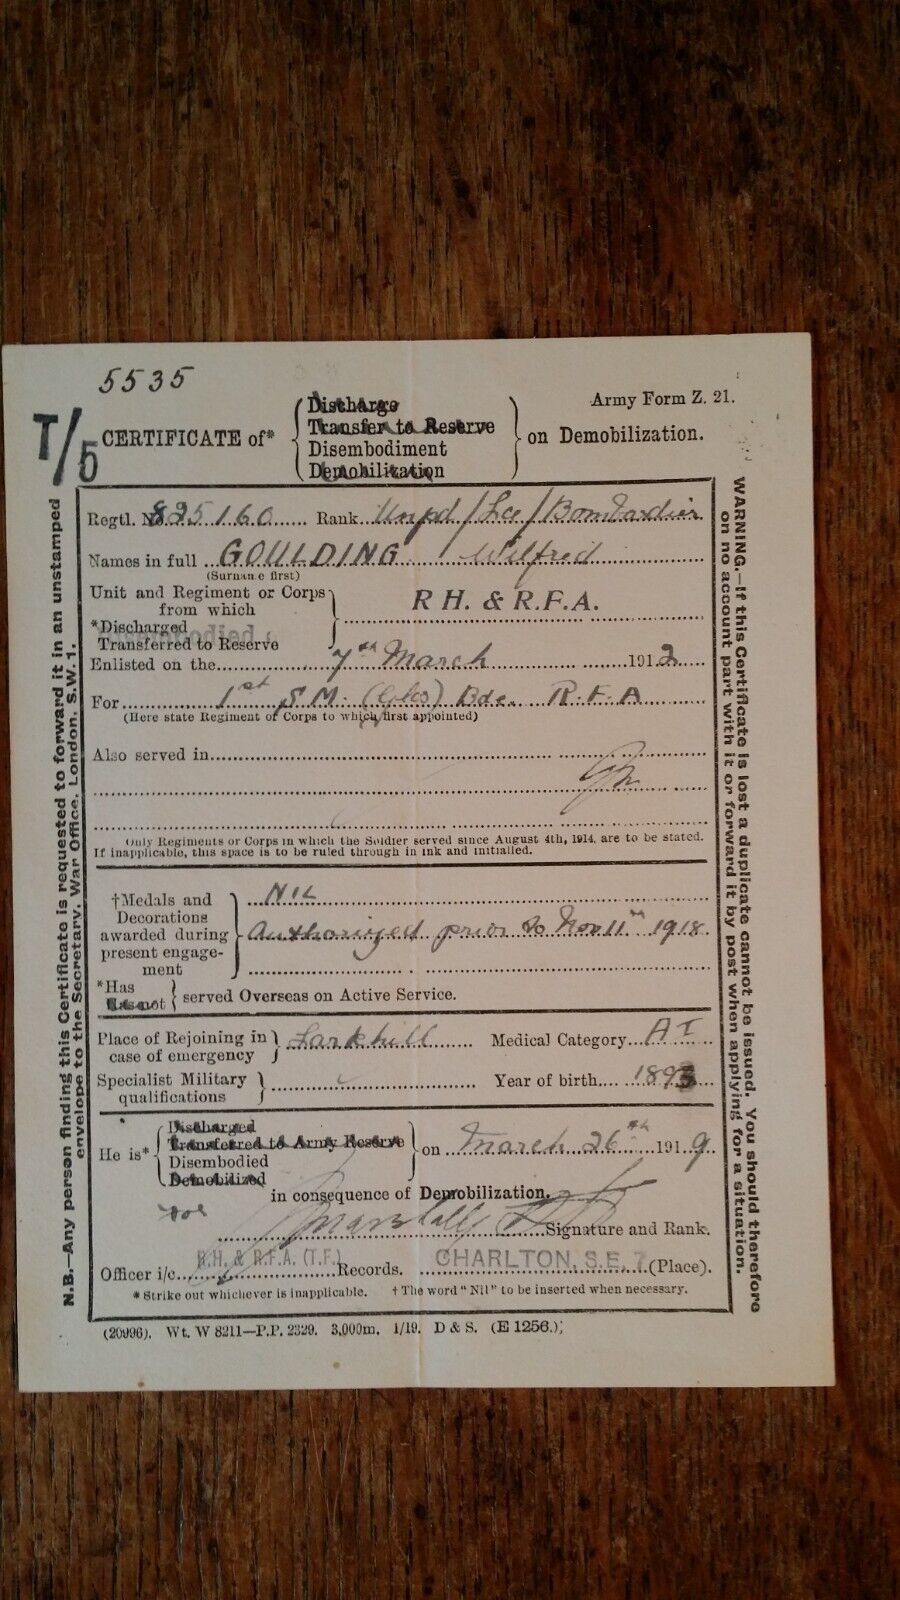 5535
Army Form Z. 21.
T/5
CERTIFICATE of*
Discharge
Transfer to Reserve
Disembodiment
Demobilization
on Demobilization.
Regtl. No. 825160 Rank Unpd/Lce/Bombardier
Names in full GOULDING Wilfred
(Surname first)
Unit and Regiment or Corps
from which
R H. & R.F.A.
*Discharged
Disembodied
Transferred to Reserve
Enlisted on the 7th March 1912
For 1st S.M. (Glos) Bde. R.F.A
(Here state Regiment or Corps to which first appointed)
Also served in
Only Regiments or Corps in which the Soldier served since August 4th, 1914, are to be stated.
If inapplicable, this space is to be ruled through in ink and initialled.
†Medals and
Decorations
awarded during
present engage-
ment
NIL
Authorized prior to Nov 11th 1918
*Has
Has not
served Overseas on Active Service.
Place of Rejoining in
case of emergency
Larkhill
Medical Category A I
Specialist Military
qualifications
Year of birth 1893
He is*
Discharged
Transferred to Army Reserve
Disembodied
Demobilized
on March 26th 1919
in consequence of Demobilization.
for
Marshall
Signature and Rank.
Officer i/c R.H. & R.F.A. (T.F.) Records. CHARLTON, S.E. 7. (Place).
* Strike out whichever is inapplicable. † The word "Nil" to be inserted when necessary.
(20996). Wt. W 8211—P.P. 2329. 3,000m. 1/19. D & S. (E 1256.)
N.B.—Any person finding this Certificate is requested to forward it in an unstamped
envelope to the Secretary, War Office, London, S.W. 1.
WARNING.—If this Certificate is lost a duplicate cannot be issued. You should therefore
on no account part with it or forward it by post when applying for a situation.